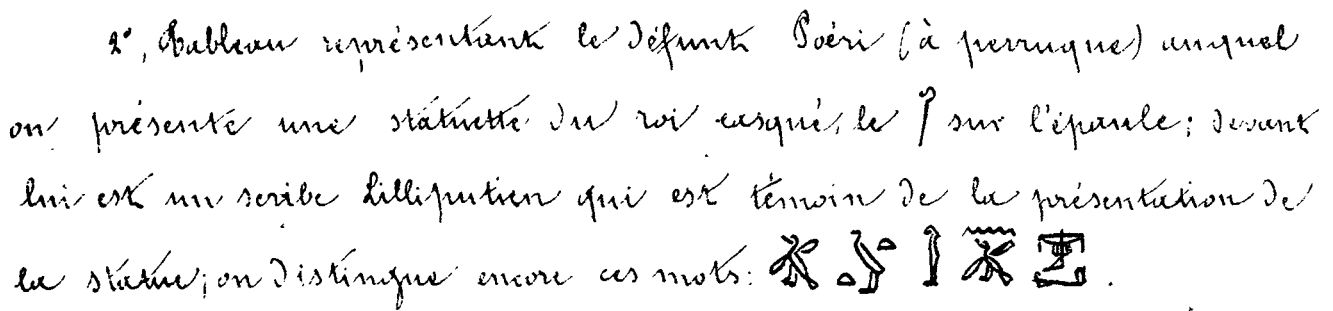 2°, Tableau représentant le défunt Poëri (à perruque) auquel
on présente une statuette du roi casqué, le 𓋾 sur l'épaule; devant
lui est un scribe Lilliputien qui est témoin de la présentation de
la statue; on distingue encore ces mots: